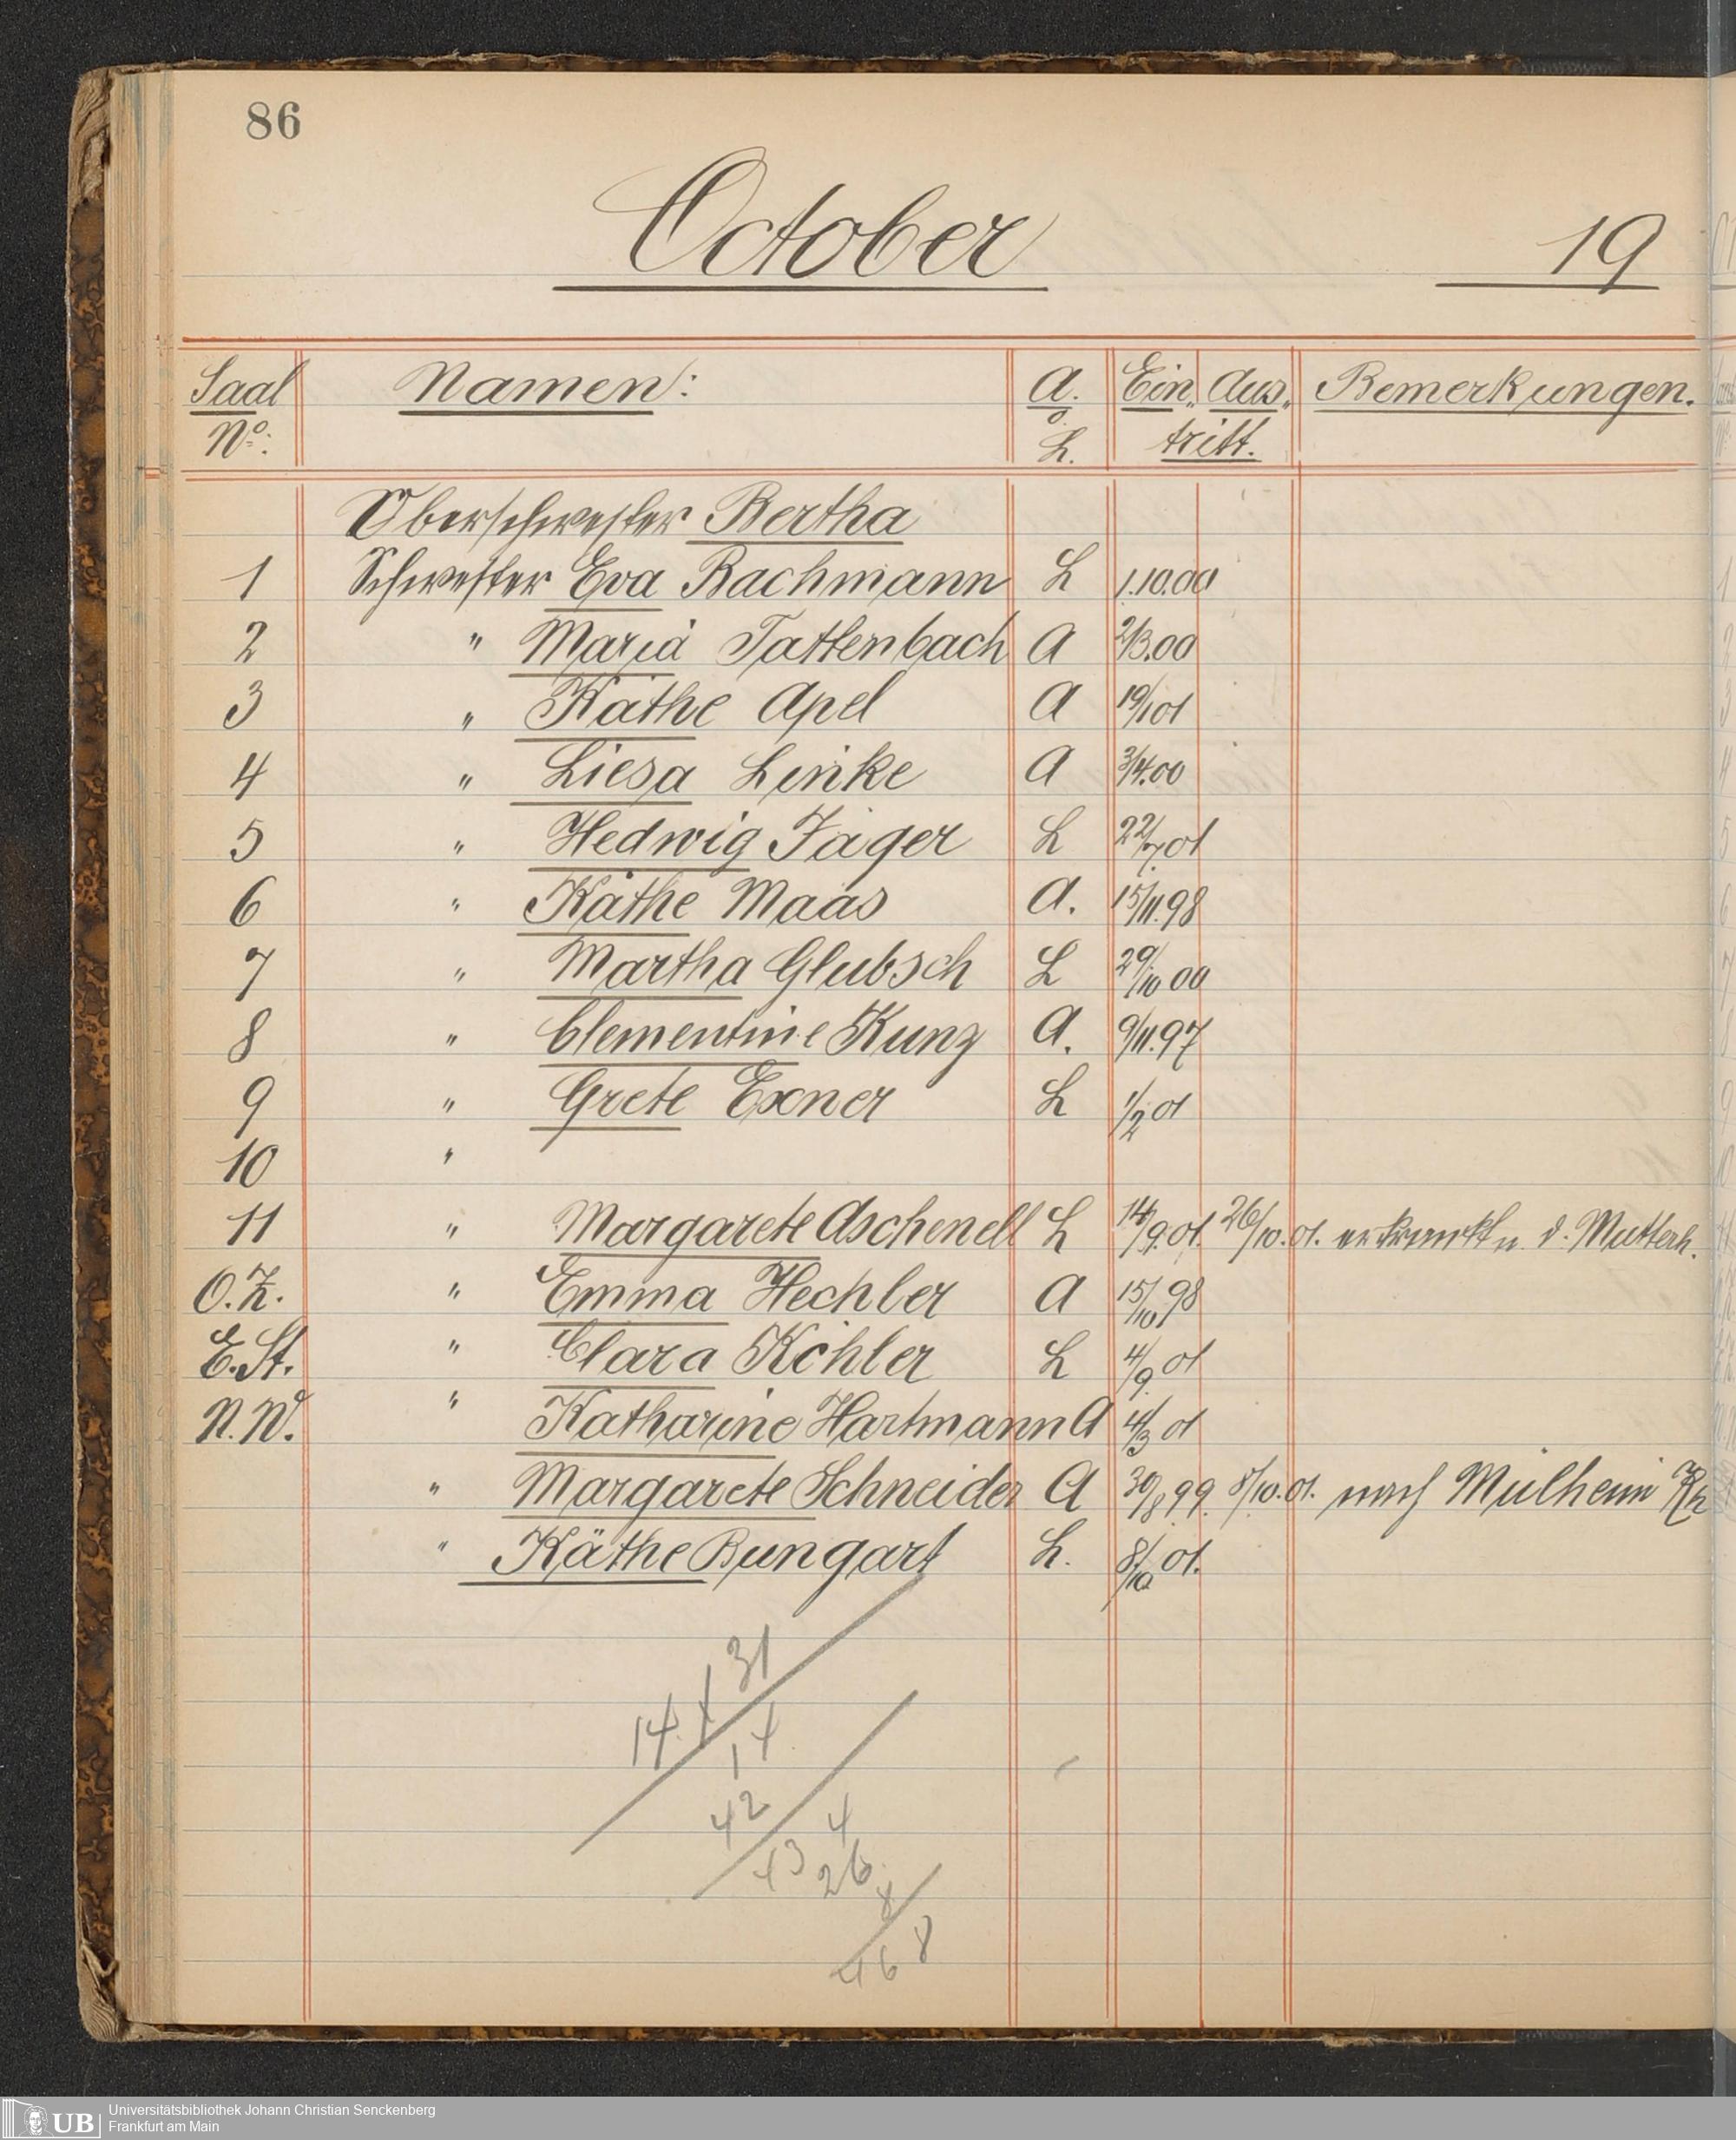 86
October 19
Saal Namen: A. Ein„ Aus„ Bemerkungen.
No: o. L. tritt.
Oberschwester Bertha
1 Schwester Eva Bachmann L 1.10.00
2 " Maria Tattenbach A 2/3.00
3 " Käthe Apel A 19/1 01
4 " Liesa Linke A 3/4.00
5 " Hedwig Jäger L 22/7 01
6 " Käthe Maas A. 15/11.98
7 " Martha Glubsch L 29/10 00
8 " Clementine Kunz A. 9/11.97
9 " Grete Exner L 1/2 01
10 "
11 " Margarete Aschenell L 14/9.01. 26/10.01. erkrankt n. d. Mutterh.
O.Z. " Emma Hechler A 15/10 98
E.St. " Clara Köhler L 4/9 01
N.W. " Katharine Hartmann A 4/3 01
" Margarete Schneider A 30/8 99. 8/10.01. nach Mülheim Rh
" Käthe Bungart L. 8/10 01.
31
14
14
42
4
43
26
8
8
468
UB Universitätsbibliothek Johann Christian Senckenberg
Frankfurt am Main